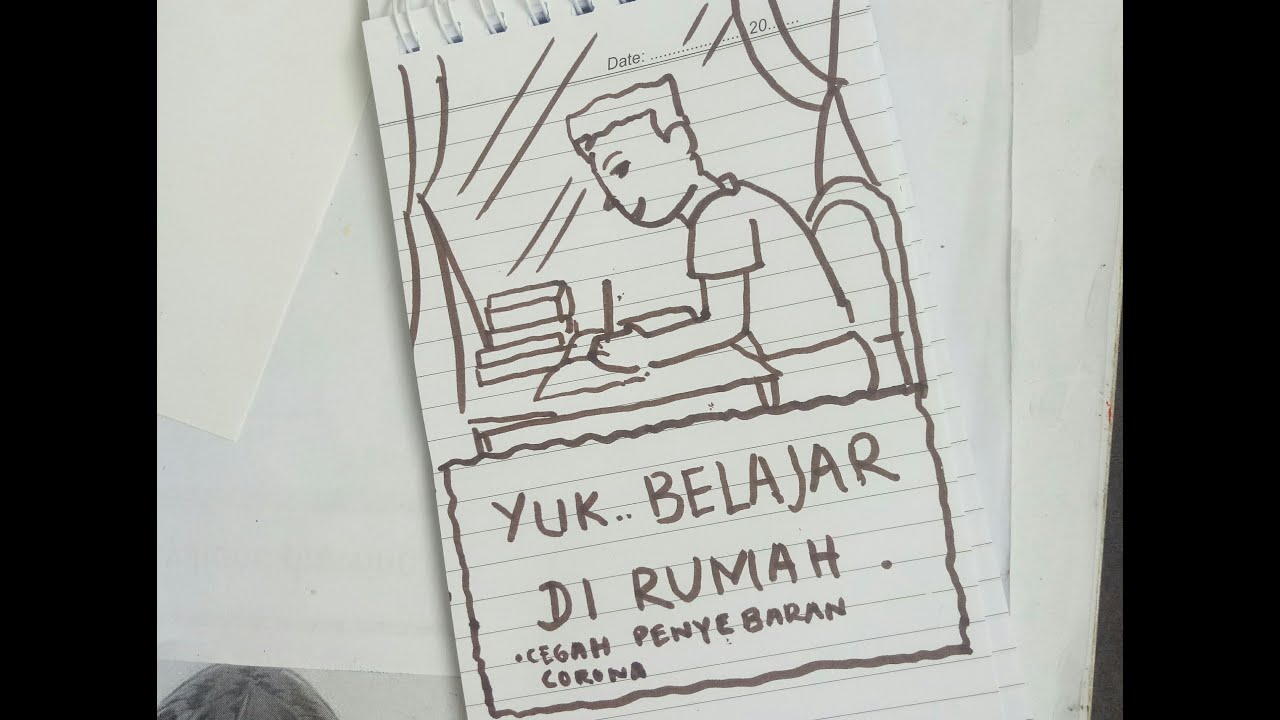 Date: .................... 20.......
YUK.. BELAJAR
DI RUMAH.
• CEGAH PENYEBARAN
CORONA